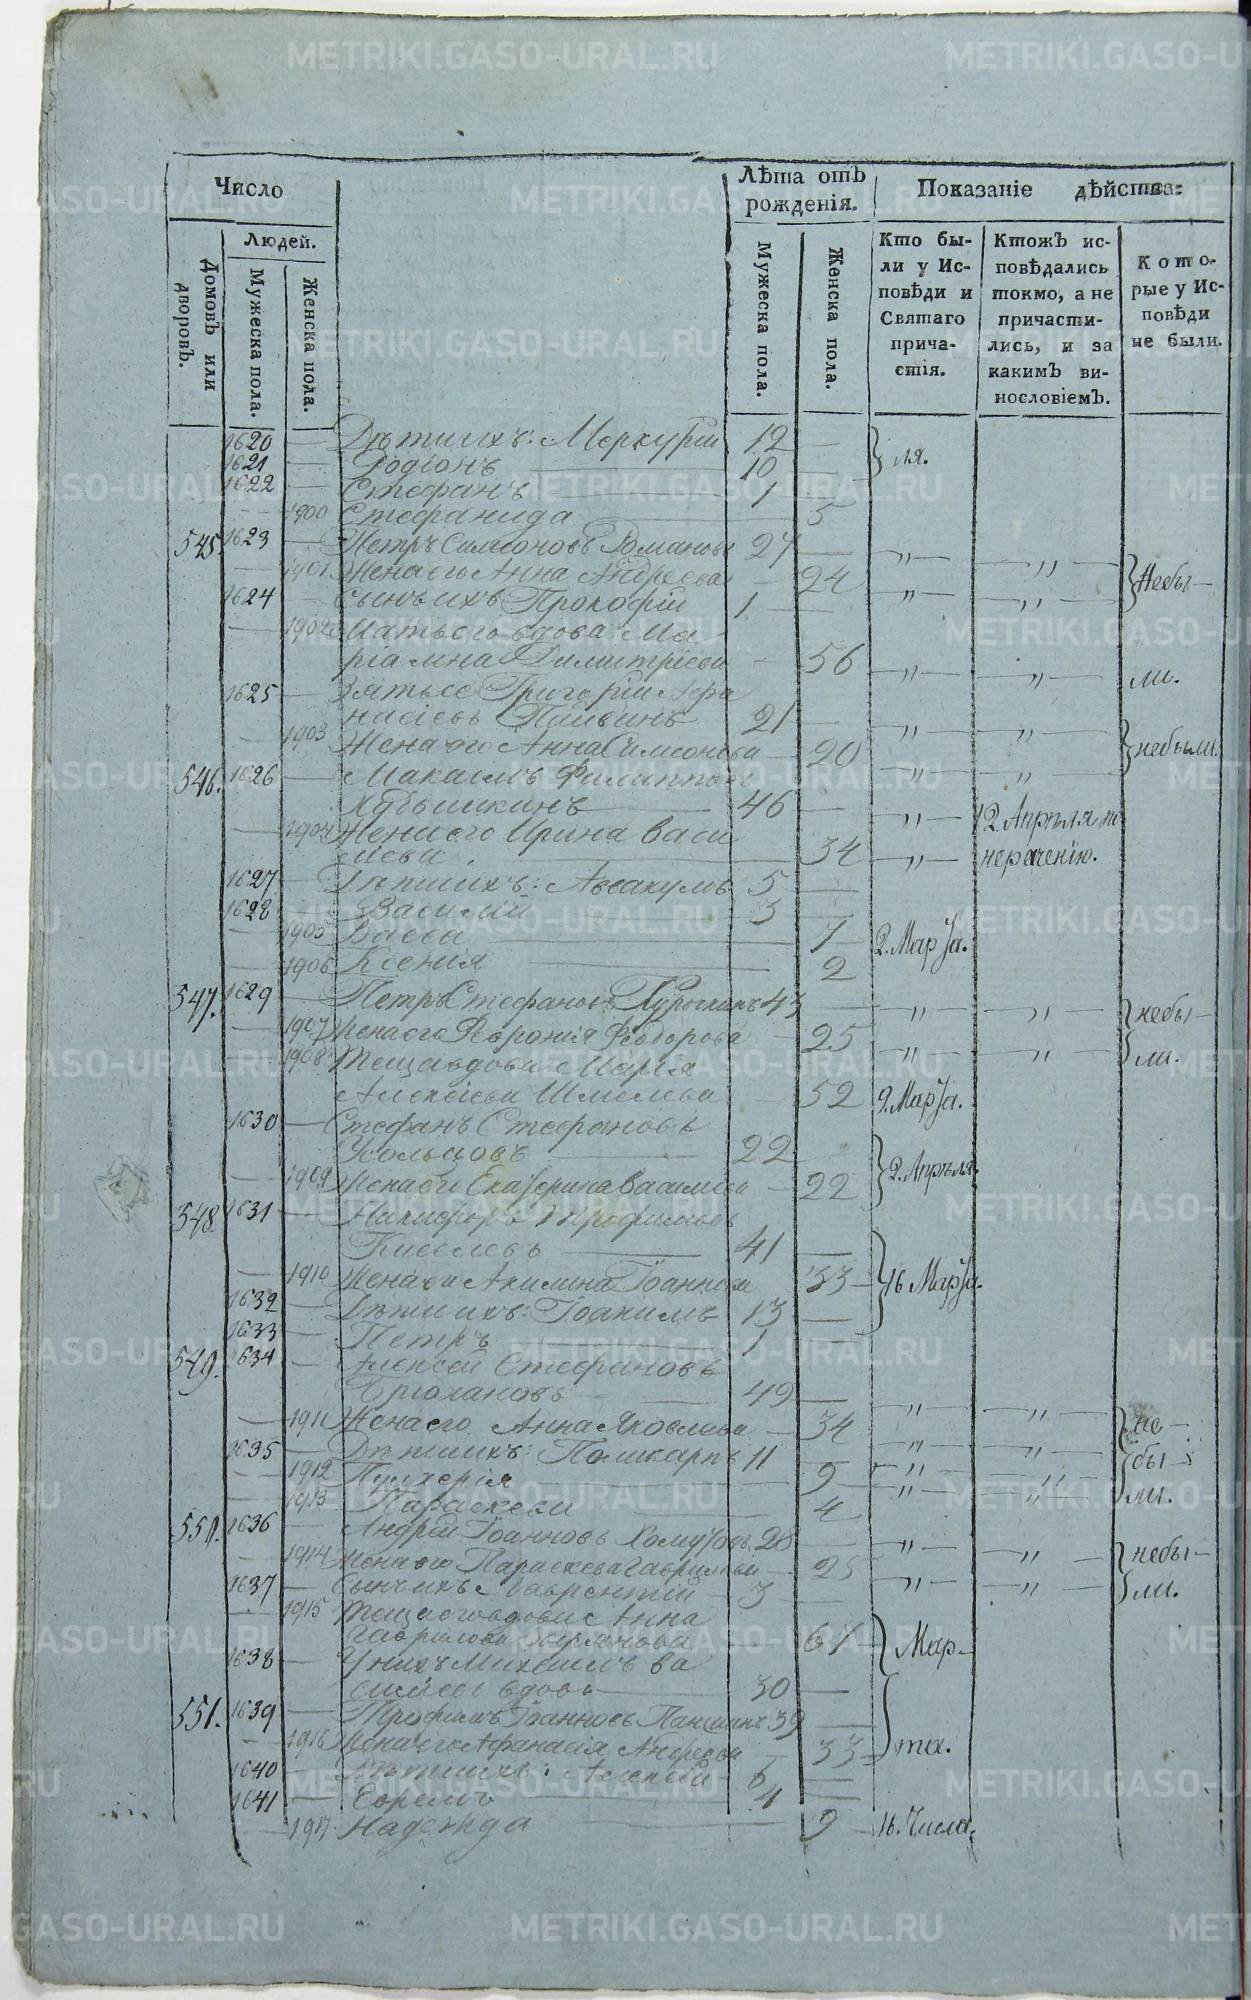 Число
Людей.
Домовъ или дворовъ.
Мужеска пола.
Женска пола.
Лѣта отъ
рожденія.
Мужеска пола.
Женска пола.
Показаніе дѣйства:
Кто бы-
ли у Ис-
повѣди и
Святаго
прича-
стія.
Ктожъ ис-
повѣдались
токмо, а не
причасти-
лись, и за
какимъ ви-
нословіемъ.
Кото-
рые у Ис-
повѣди
не были.
1620 — Дѣти ихъ: Меркурій 12 — ля.
1621 — Родіонъ — 10 —
1622 — Стефанъ — 1 —
— 1900 Стефанида — 5
545. 1623 — Петръ Симеоновъ Романовъ 27 — „ —
— 1901 Жена его Анна Андреева — 24 — „ — Небы-
1624 — Сынъ ихъ Прокофій 1 — „ — „ —
— 1902 Мать его вдова Ма
ріамна Димитріева — 56 — „ — „ — ли.
1625 — Зять ее Григорій Афа
насіевъ Пайвинъ 21 — „ — „ —
— 1903 Жена его Анна Симеонова — 20 — „ — „ — небыли.
546. 1626 — Максимъ Филиппов
46 — „ — 12. Апрѣля по
— 1904 Жена его Ирина Васи
лева — 34 — „ — нераченію.
1627 — Дѣти ихъ: Аввакумъ 5 —
1628 — Василій 3 —
— 1905 Васса — 7 2. Марта.
— 1906 Ксенія — 2
547. 1629 — Петръ Стефановъ 43 — „ — „ — небы-
— 1907 Жена его Феvронія Феодорова — 25 — „ — „ — ли.
— 1908 Теща вдова Марія
Алексіева Шмелева — 52 9. Марта.
1630 — Стефанъ Стефановъ
Усольцовъ — 22
— 1909 Жена его Екатерина Васильева — 22 2. Апрѣля.
548. 1631 — Никифоръ Трофимовъ
Киселевъ — 41 —
— 1910 Жена его Акилина Іоаннова 33 — 16 Марта.
1632 — Дѣти ихъ: Іоакимъ 13 —
1633 — Петръ 1 —
549. 1634 — Алексей Стефановъ
Брюхановъ — 49 — „ — „ —
— 1911 Жена его Анна Яковлева — 34 — „ — „ — не-
1635 — Дѣти ихъ: Поликарпъ 11 — „ — „ — бы-
— 1912 Пулхерія — 9 — „ — „ — ли.
— 1913 Параскева — 4
550. 1636 — Андрей Іоанновъ Хомутовъ 28 — „ — „ — небы-
— 1914 Жена его Параскева Гаврилова — 25 — „ — „ — ли.
1637 — Сынъ ихъ Лаврентій — 3 —
— 1915 Теща его вдова Анна
Гаврилова — 61 Мар-
1638 — У нихъ Михаилъ Ва
силіевъ вдовъ — 30 —
551. 1639 — Трофимъ Іоанновъ Паншинъ 39 —
— 1916 Жена его Афанасія Андреева — 33 — та.
1640 — Дѣти ихъ: Алексій 6 —
1641 — Ефремъ 4 —
— 1917 Надежда — 9 — 16. Числа.
METRIKI.GASO-URAL.RU